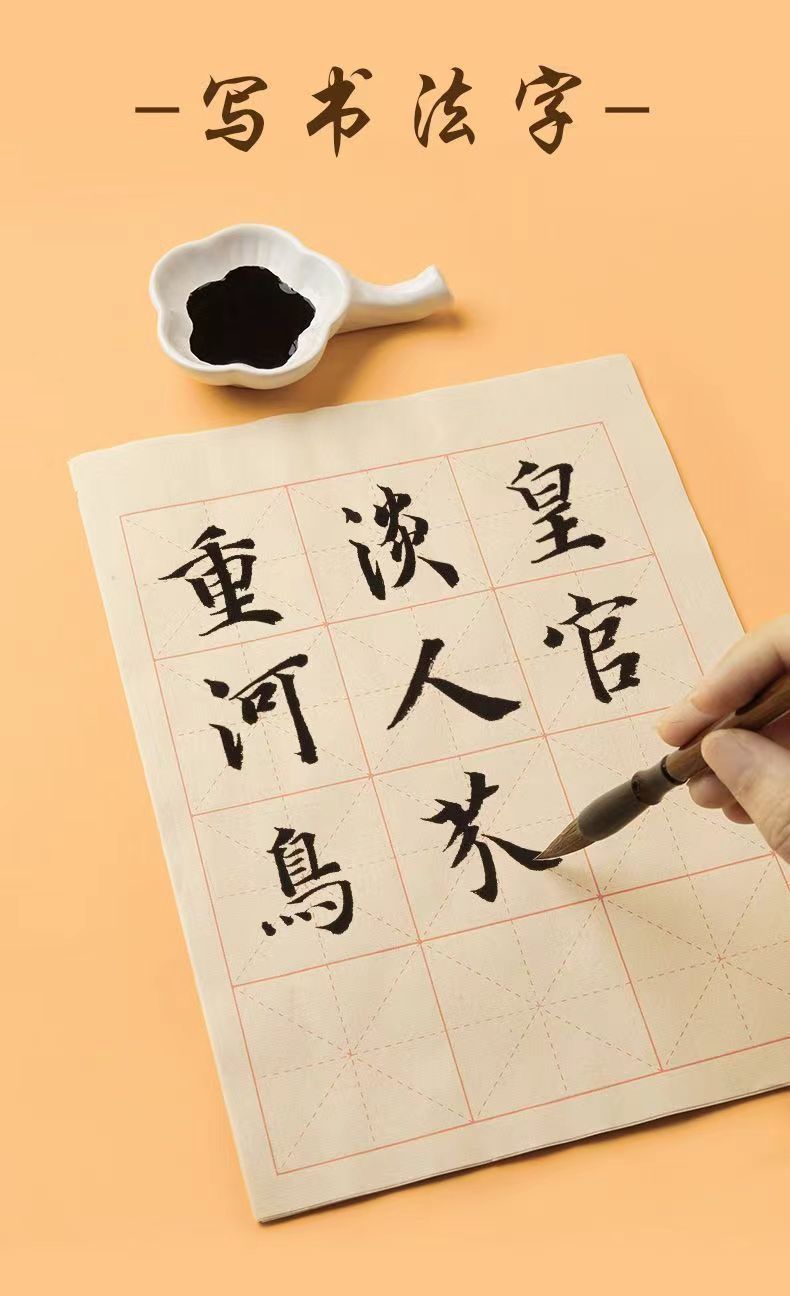 写书法字
重淡皇
河人官
鳥芥